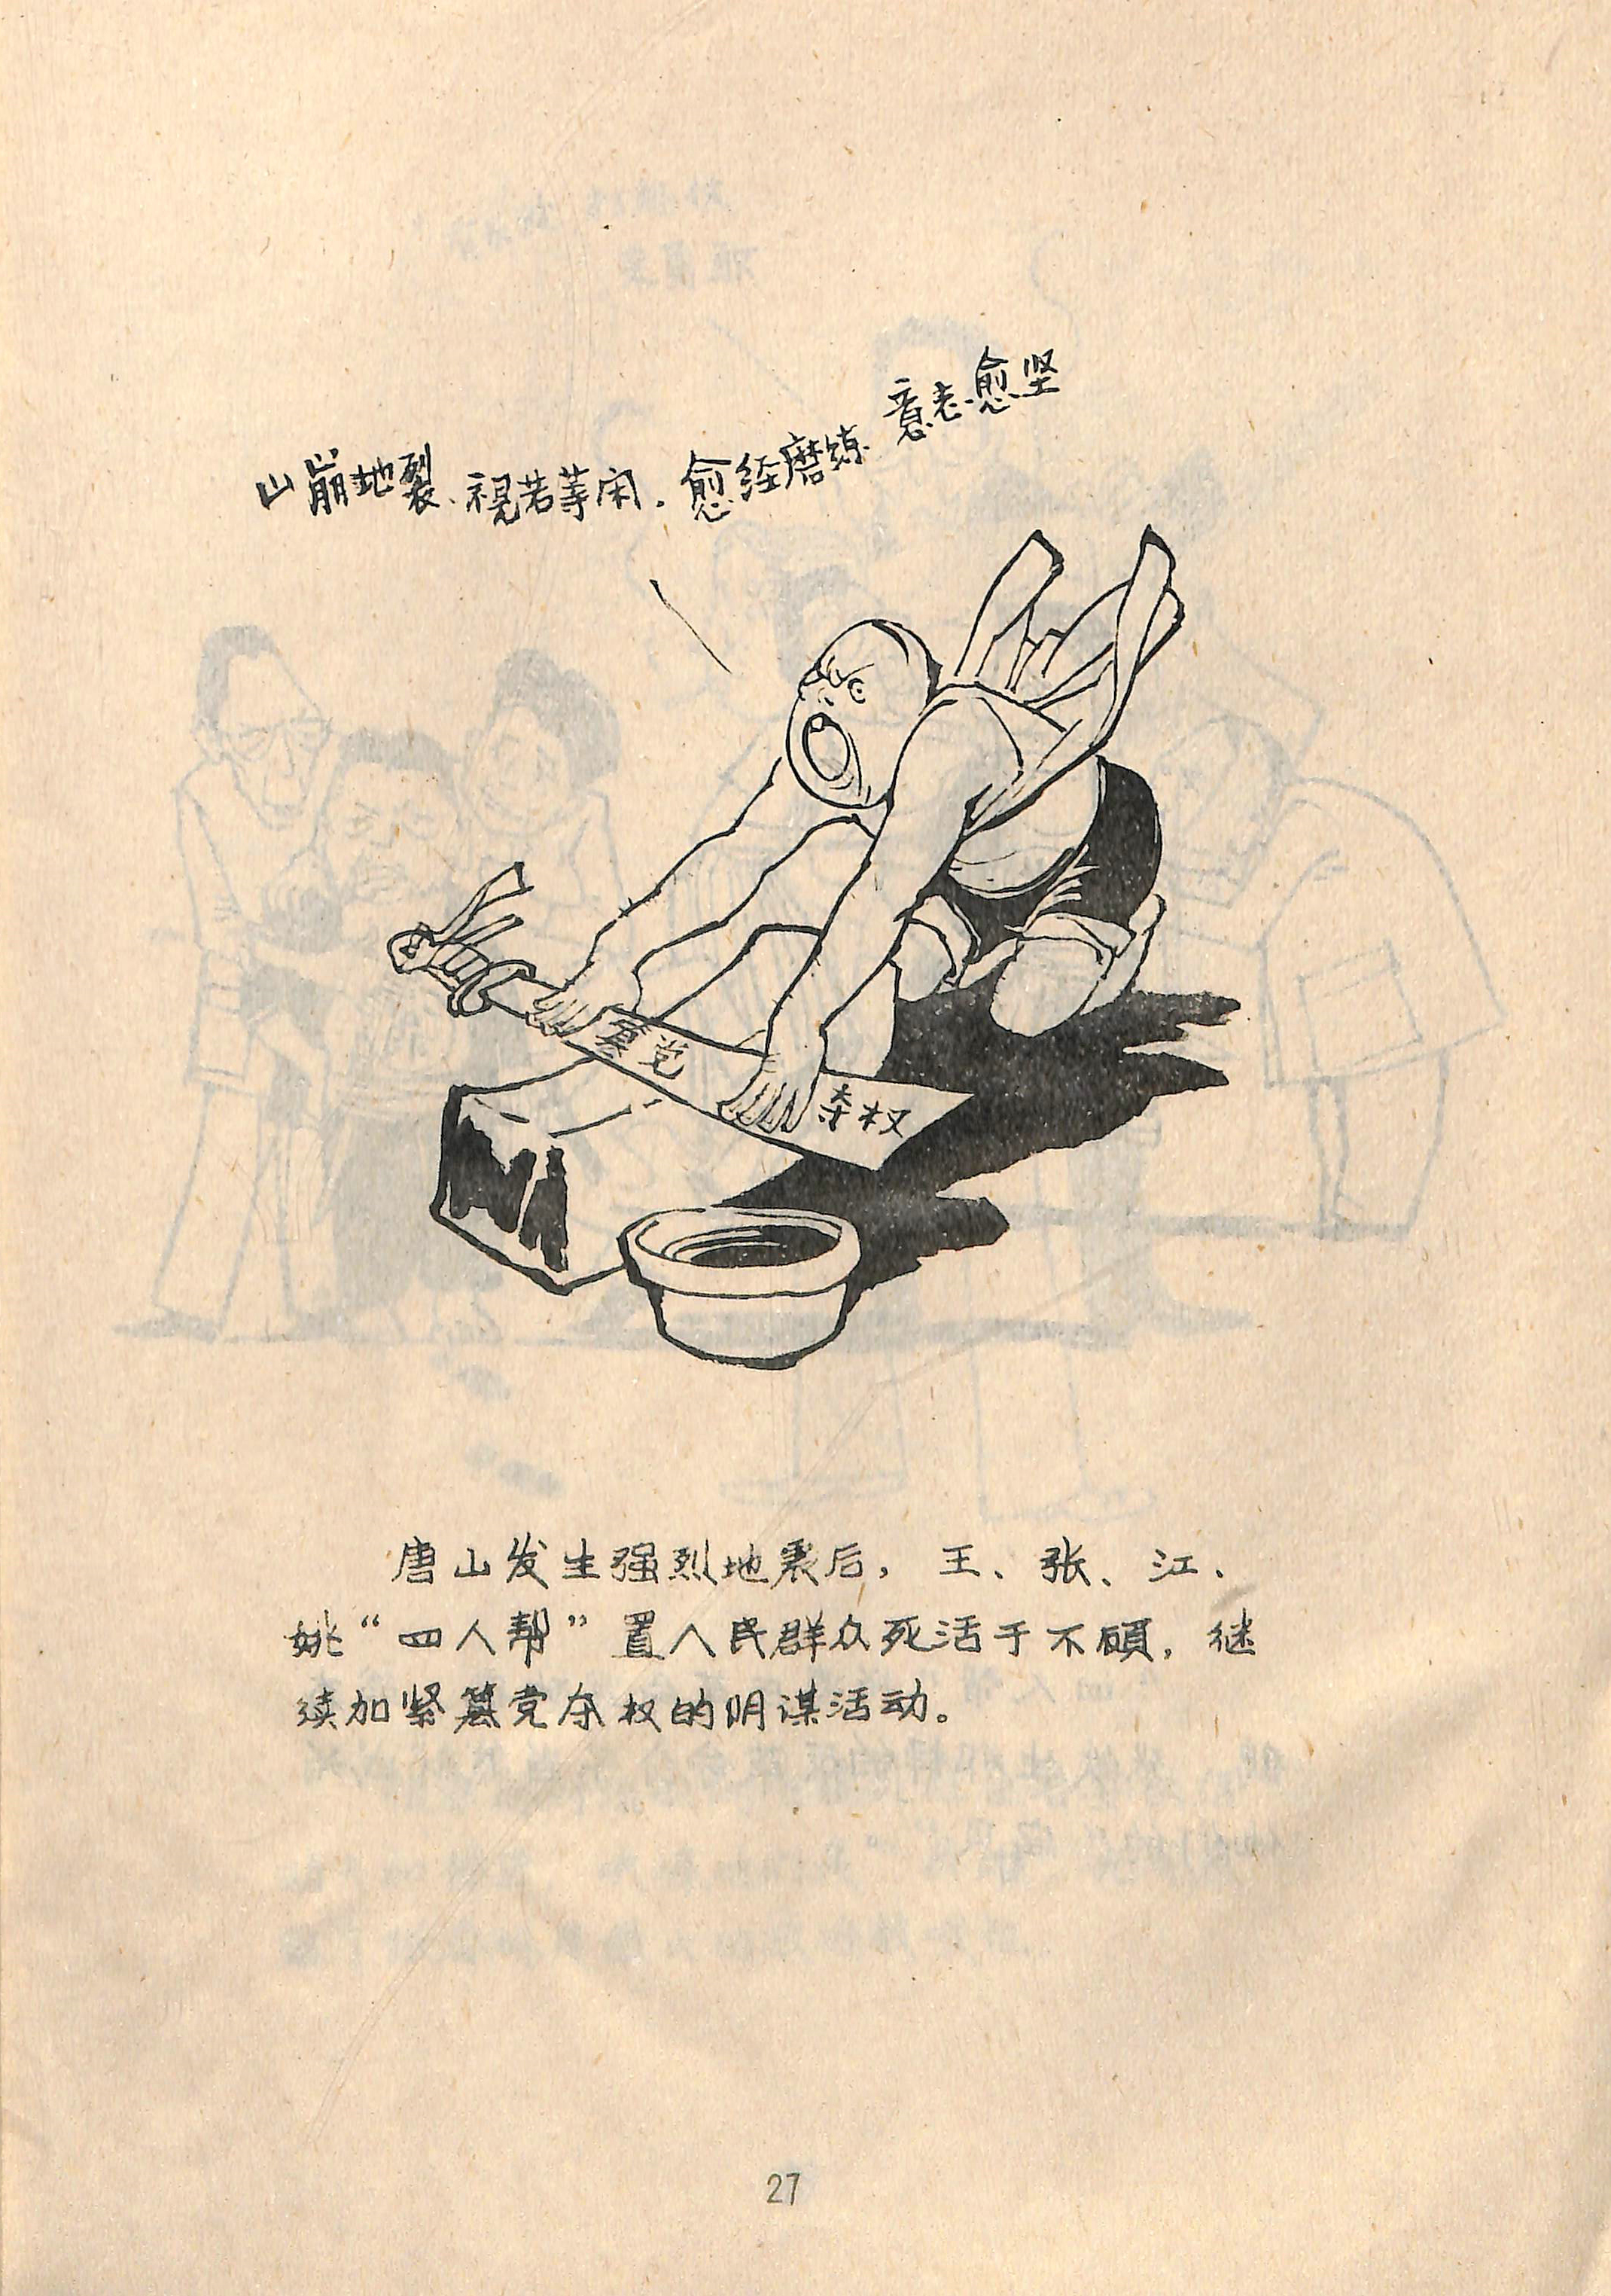 山崩地裂、視若等闲.愈经磨炼 意志愈坚
篡党
夺权
唐山发生强烈地震后，王、张、江、
姚“四人帮”置人民群众死活于不顾，继
续加紧篡党夺权的阴谋活动。
27